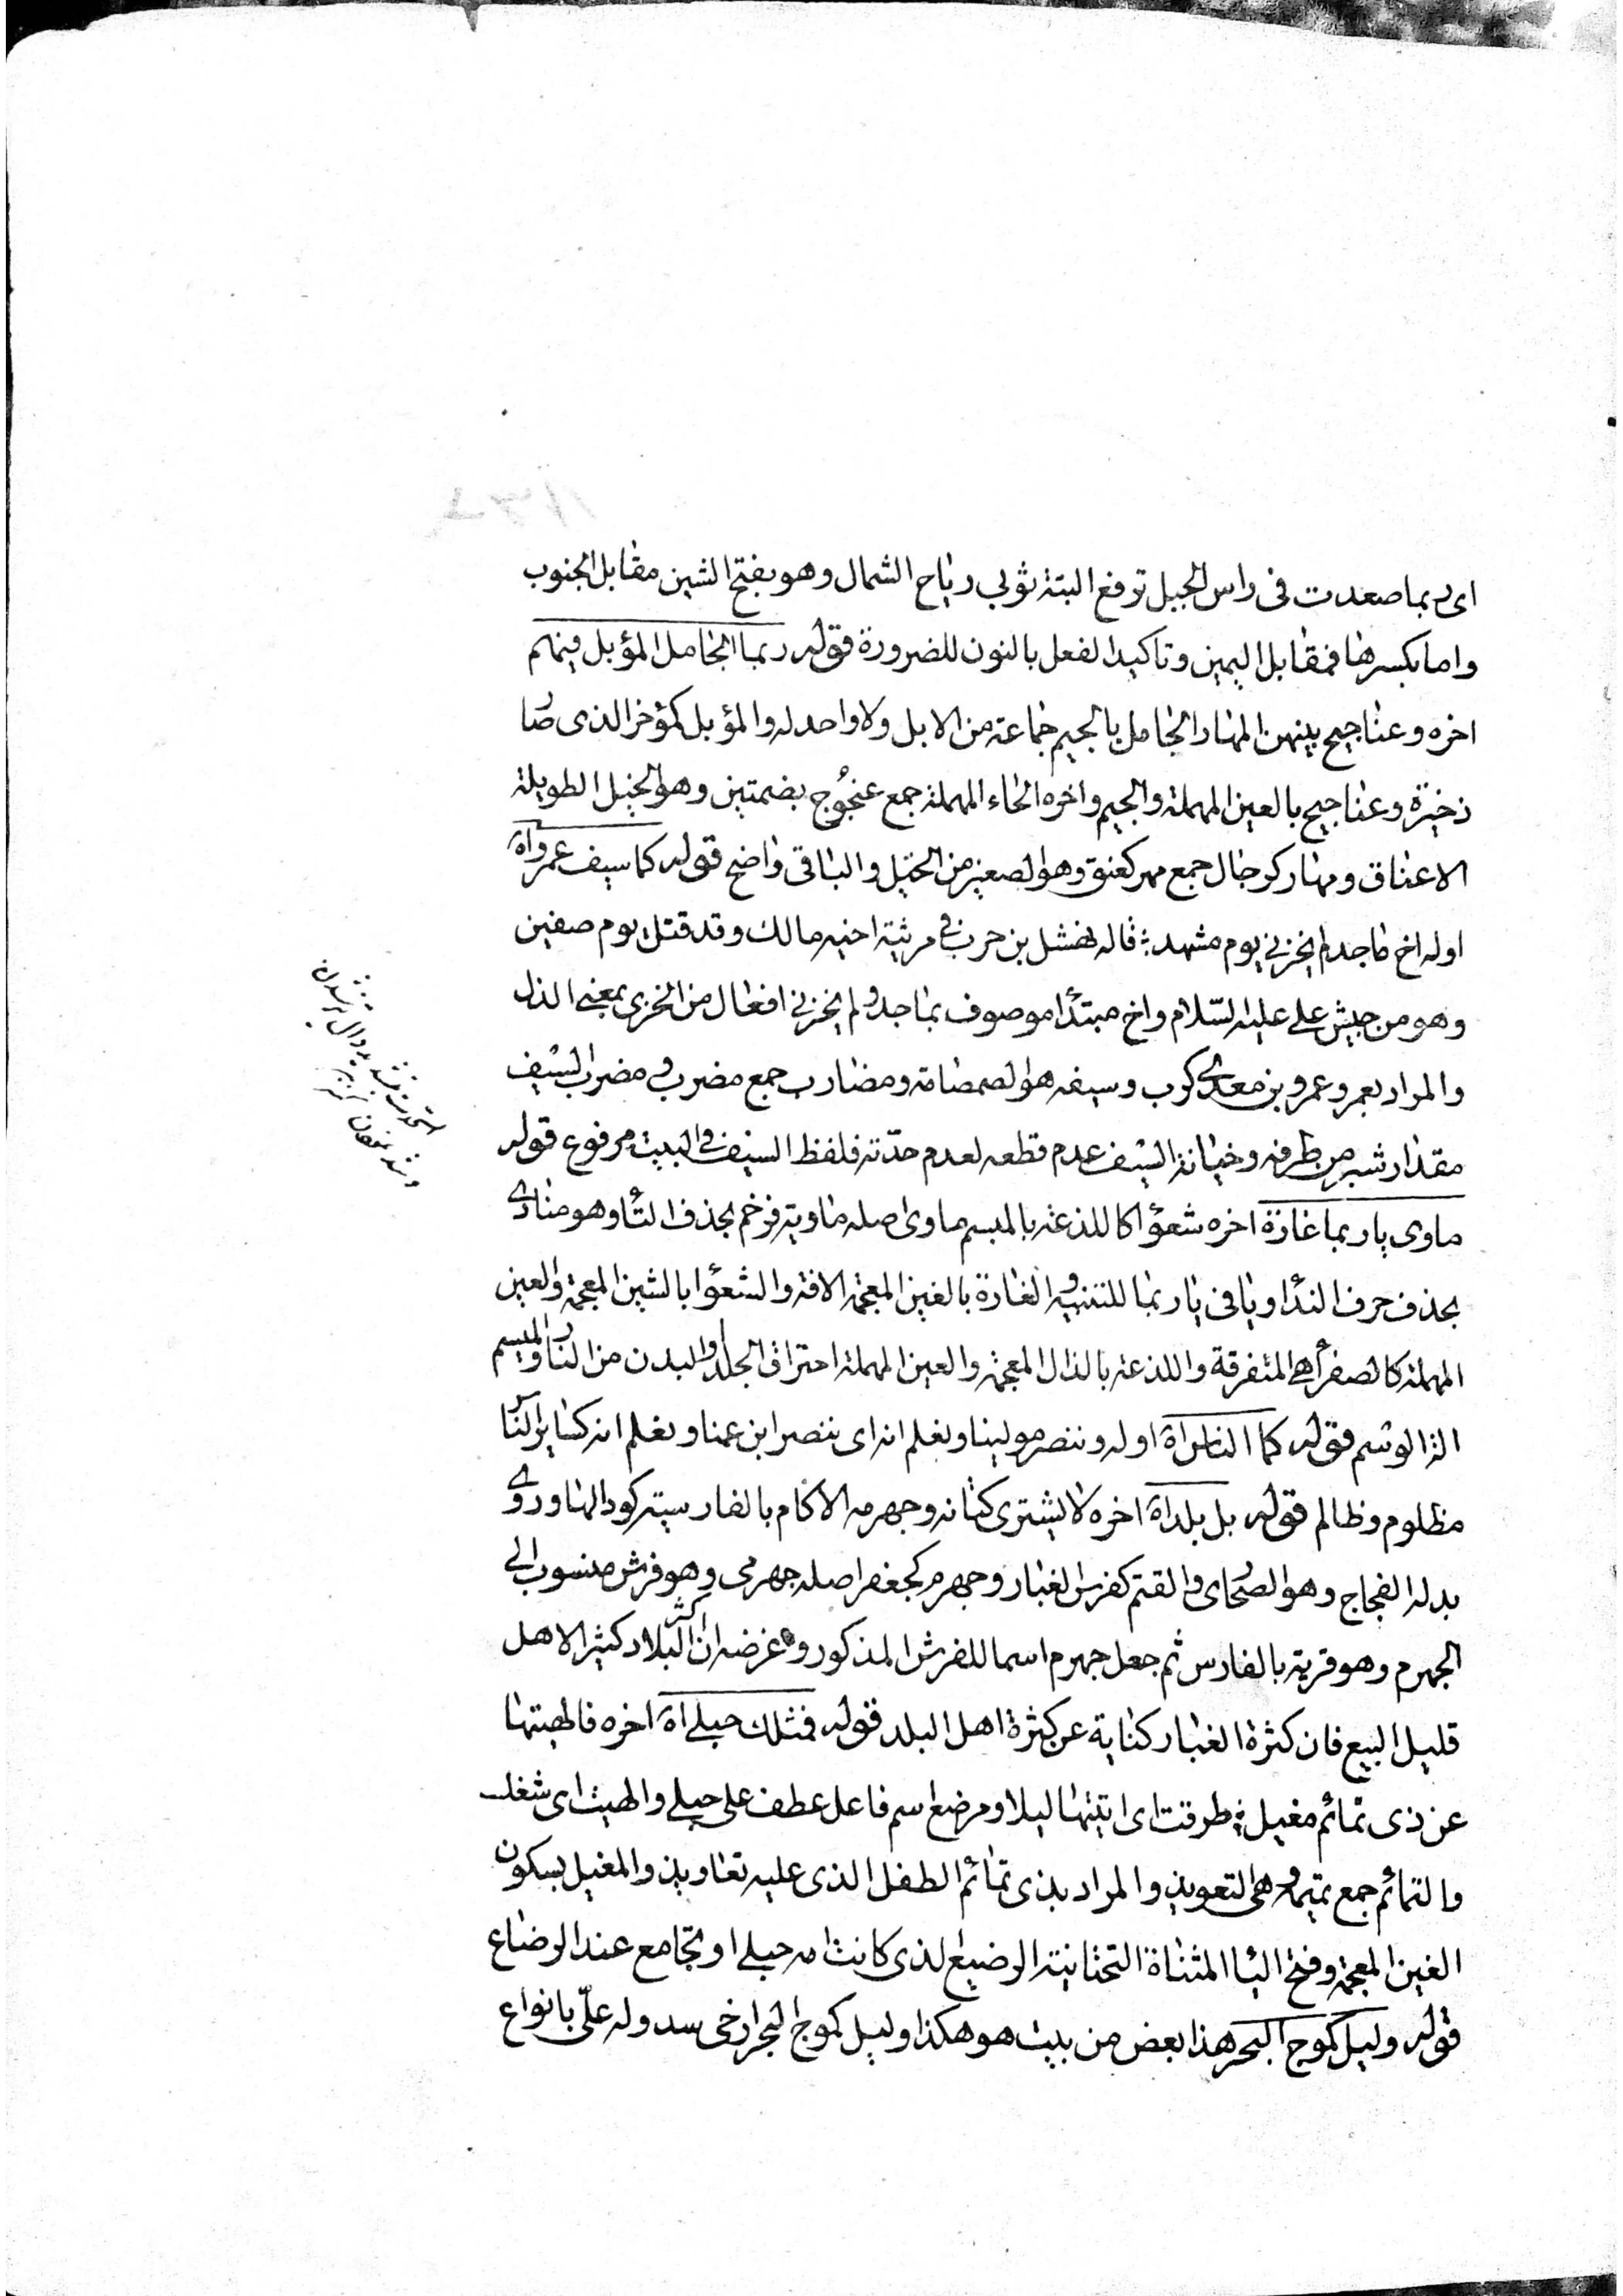 اى ربما صعدت فى راس الجبل ترفع البتة ثوبى رياح الشمال وهو بفتح الشين مقابل الجنوب
واما بكسرها فمقابل اليمين وتاكيد الفعل بالنون للضرورة قوله ربما الجامل المؤبل فيهم
اخره وعناجيج بينهن المهار الجامل بالجيم جماعة من الابل ولا واحد له والمؤبل كمؤخر الذى صار
ذخيرة وعناجيح بالعين المهملة والجيم واخره الحاء المهملة جمع عنجُوج بضمتين وهو الخيل الطويلة
الاعناق ومهار كرجال جمع مهر كعنق وهو الصغير من الخيل والباقى واضح قوله كما سيف عمرو اه
اوله اخ ماجد لم يخزنى يوم مشهد ؛ قاله نهشل بن حرى فى مرثية اخيه مالك وقد قتل يوم صفين
وهو من جيش على عليه السّلام واخ مبتدأ موصوف بماجد ولم يخزنى افعال من الخزى بمعنى الذل
والمراد بعمرو عمرو بن معدى كرب وسيفه هو الصمصامة ومضارب جمع مضرب ومضرب السيف
مقدار شبر من طرفه وخيانة السيف عدم قطعه لعدم حدّته فلفظ السيف فى البيت مرفوع قوله
ماوى يا ربما غارة اخره شعوٓا كاللذعة بالميسم ماوى اصله ماوية فرخم بحذف التٓا وهو منادى
بحذف حرف الندٓا ويا فى يا ربما للتنبيه والغارة بالغين المعجمة الافة والشعوٓا بالشين المعجمة والعين
المهملة كالصفرٓا هى المتفرقة واللذعة بالذال المعجمة والعين المهملة احتراق الجلد والبدن من النار والميسم
الة الوسم قوله كما الناس اه اوله وننصر مولينا ونعلم انه اى ننصر ابن عمنا ونعلم انه كسائر النّاس
مظلوم وظالم قوله بل بلد اه اخره لا يشترى كتانه وجهرمه الاكام بالفارسية كودالها وروى
بدله الفجاج وهو الصحارى والقتم كفرس الغبار وجهرم كجعفر اصله جهرمى وهو فرش منسوب الى
الجهرم وهو قرية بالفارس ثم جعل جهرم اسما للفرش المذكور وغرضه ان اكثر البلاد كثير الاهل
قليل البيع فان كثرة الغبار كناية عن كثرة اهل البلد قوله فمثلك حبلى اه اخره فالهيتها
عن ذى تمائم مغيل ؛ طرقت اى اتيتها ليلا ومرضع اسم فاعل عطف على حبلى والهيت اى شغلت
والتمائم جمع تميمة وهى التعويذ والمراد بذى تمائم الطفل الذى عليه تعاويذ والمغيل بسكون
الغين المعجمة وفتح اليٓا المثناة التحتانية الرضيع الذى كانت امه حبلى او تجامع عند الرضاع
قوله وليل كموج البحر هذا بعض من بيت هو هكذا وليل كموج البحر ارخى سدوله علىّ بانواع